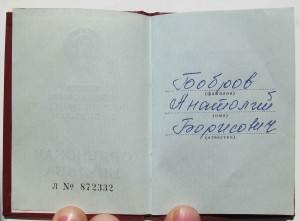 Бобров
(фамилия)
Анатолий
(имя)
Борисович
(отчество)
Л № 872332